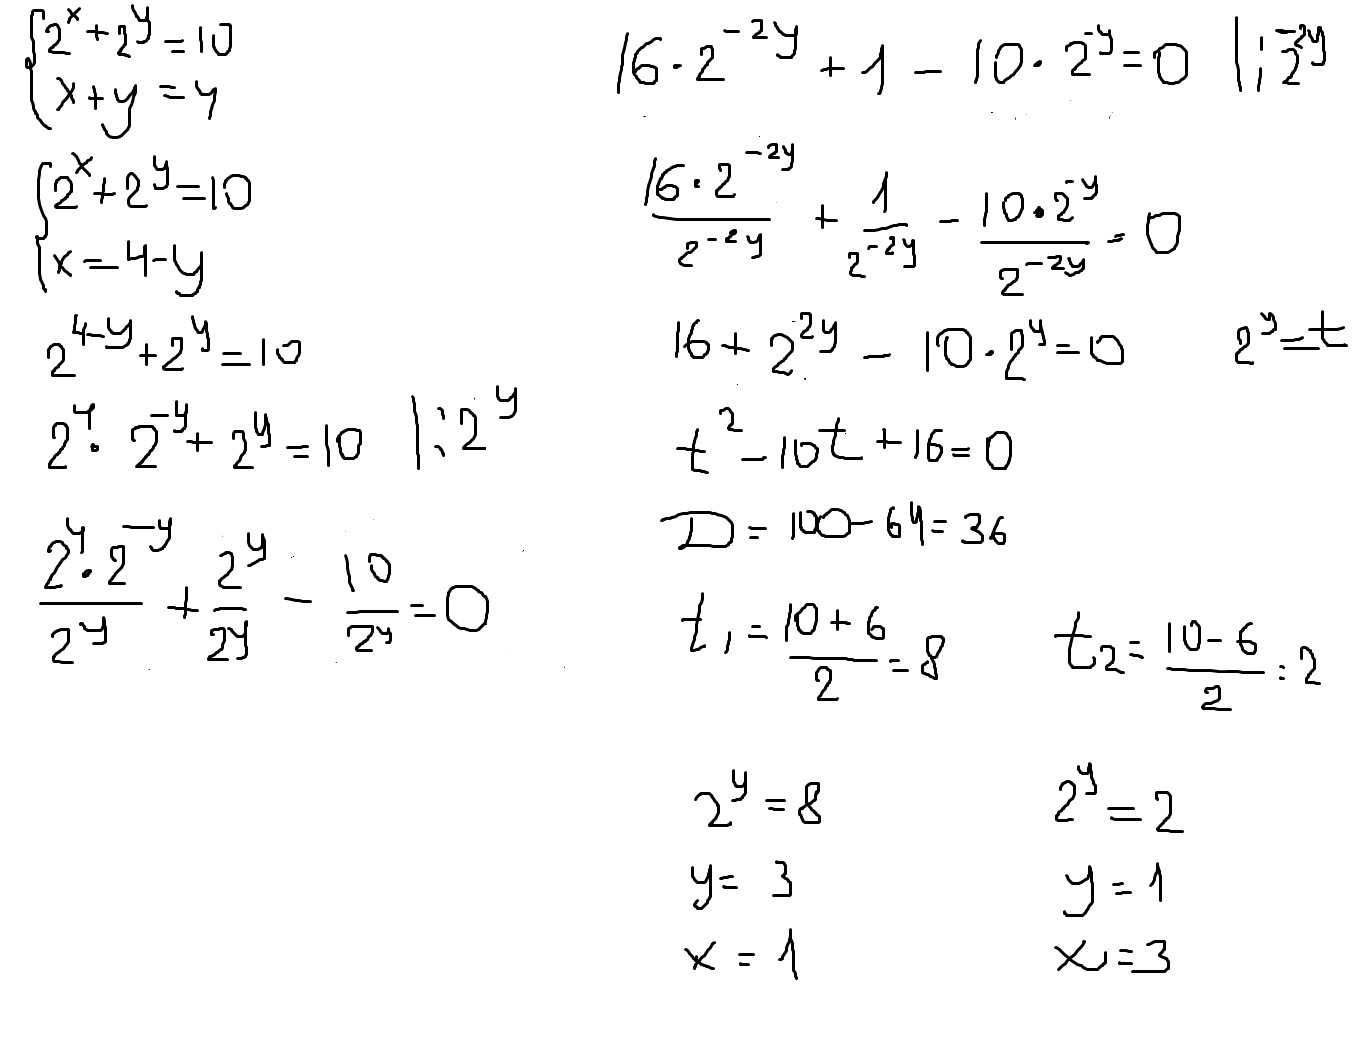 {2^x + 2^y = 10
x + y = 4
{2^x + 2^y = 10
x = 4 - y
2^(4-y) + 2^y = 10
2^4 · 2^(-y) + 2^y = 10 |: 2^y
(2^4 · 2^(-y))/2^y + 2^y/2^y - 10/2^y = 0
16 · 2^(-2y) + 1 - 10 · 2^(-y) = 0 |: 2^(-2y)
(16 · 2^(-2y))/2^(-2y) + 1/2^(-2y) - (10 · 2^(-y))/2^(-2y) = 0
16 + 2^(2y) - 10 · 2^y = 0 2^y = t
t^2 - 10t + 16 = 0
D = 100 - 64 = 36
t₁ = (10 + 6)/2 = 8 t₂ = (10 - 6)/2 = 2
2^y = 8 2^y = 2
y = 3 y = 1
x = 1 x = 3